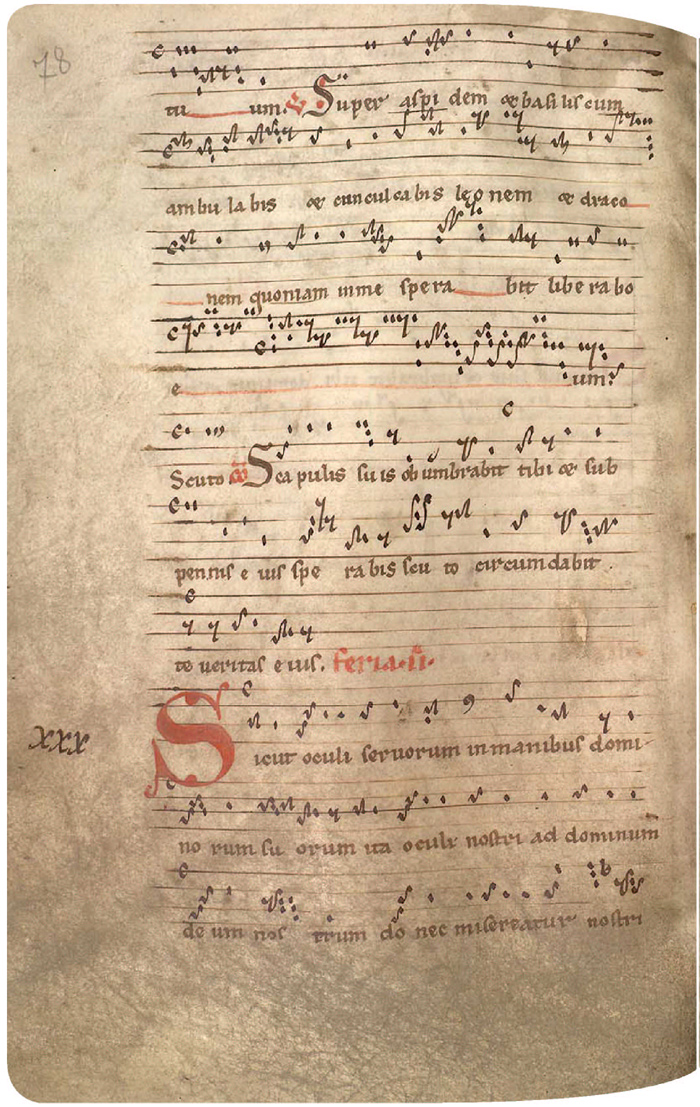 78
tu um. V Super aspi dem & basi lis cum
ambu la bis & cunculca bis leo nem & draco
nem quoniam in me spera bit libe ra bo
e um.
Scuto co Sca pulis su is ob umbrabit tibi & sub
pennis e ius spe ra bis scu to circum dabit
te veritas e ius. feria ii.
xxx
Sicut oculi servorum in manibus domi
no rum su orum ita oculi nostri ad dominum
de um nos trum do nec misereatur nostri